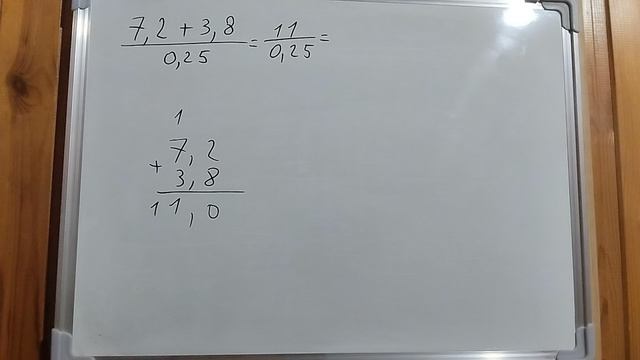 7,2 + 3,8 / 0,25 = 11 / 0,25 =
1
7,2
+
3,8
11,0